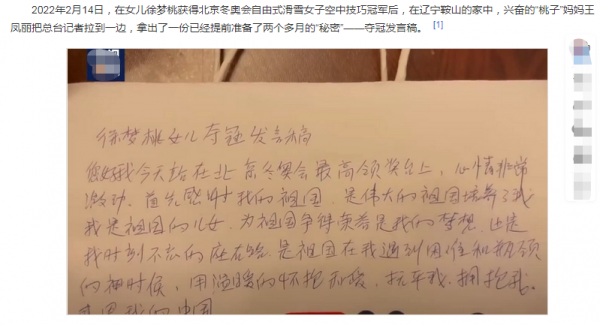 2022年2月14日，在女儿徐梦桃获得北京冬奥会自由式滑雪女子空中技巧冠军后，在辽宁鞍山的家中，兴奋的“桃子”妈妈王
凤丽把总台记者拉到一边，拿出了一份已经提前准备了两个多月的“秘密”——夺冠发言稿。 [1]
徐梦桃女儿夺冠发言稿
您好我今天站在北京冬奥会最高领奖台上，心情非常
激动。首先感谢我的祖国，是伟大的祖国培养了我
我是祖国的儿女，为祖国争得荣誉是我的梦想，也是
我时刻不忘的 是祖国在我遇到困难和瓶颈
的 时候，用温暖的怀抱 抚平我。拥抱我。
我的中国